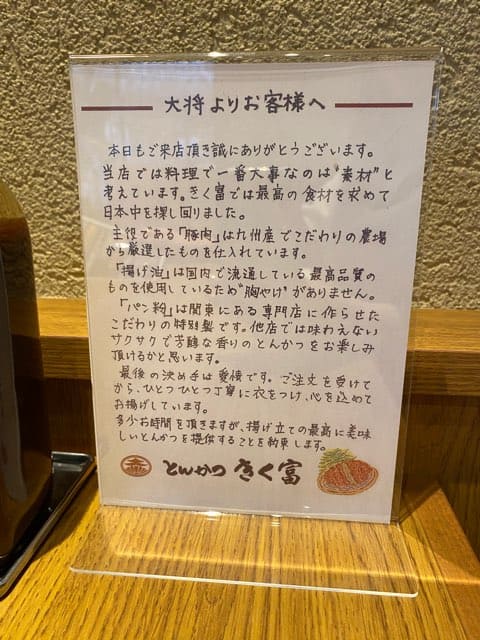 大将よりお客様へ
本日もご来店頂き誠にありがとうございます。
当店では料理で一番大事なのは"素材"と
考えています。きく富では最高の食材を求めて
日本中を探し回りました。
主役である「豚肉」は九州産でこだわりの農場
から厳選したものを仕入れています。
「揚げ油」は国内で流通している最高品質の
ものを使用しているため"胸やけ"がありません。
「パン粉」は関東にある専門店に作らせた
こだわりの特別製です。他店では味わえない
サクサクで芳醇な香りのとんかつをお楽しみ
頂けるかと思います。
最後の決め手は愛情です。ご注文を受けて
から、ひとつひとつ丁寧に衣をつけ、心を込めて
お揚げしています。
多少お時間を頂きますが、揚げ立ての最高に美味
しいとんかつを提供することを約束します。
とんかつ きく富